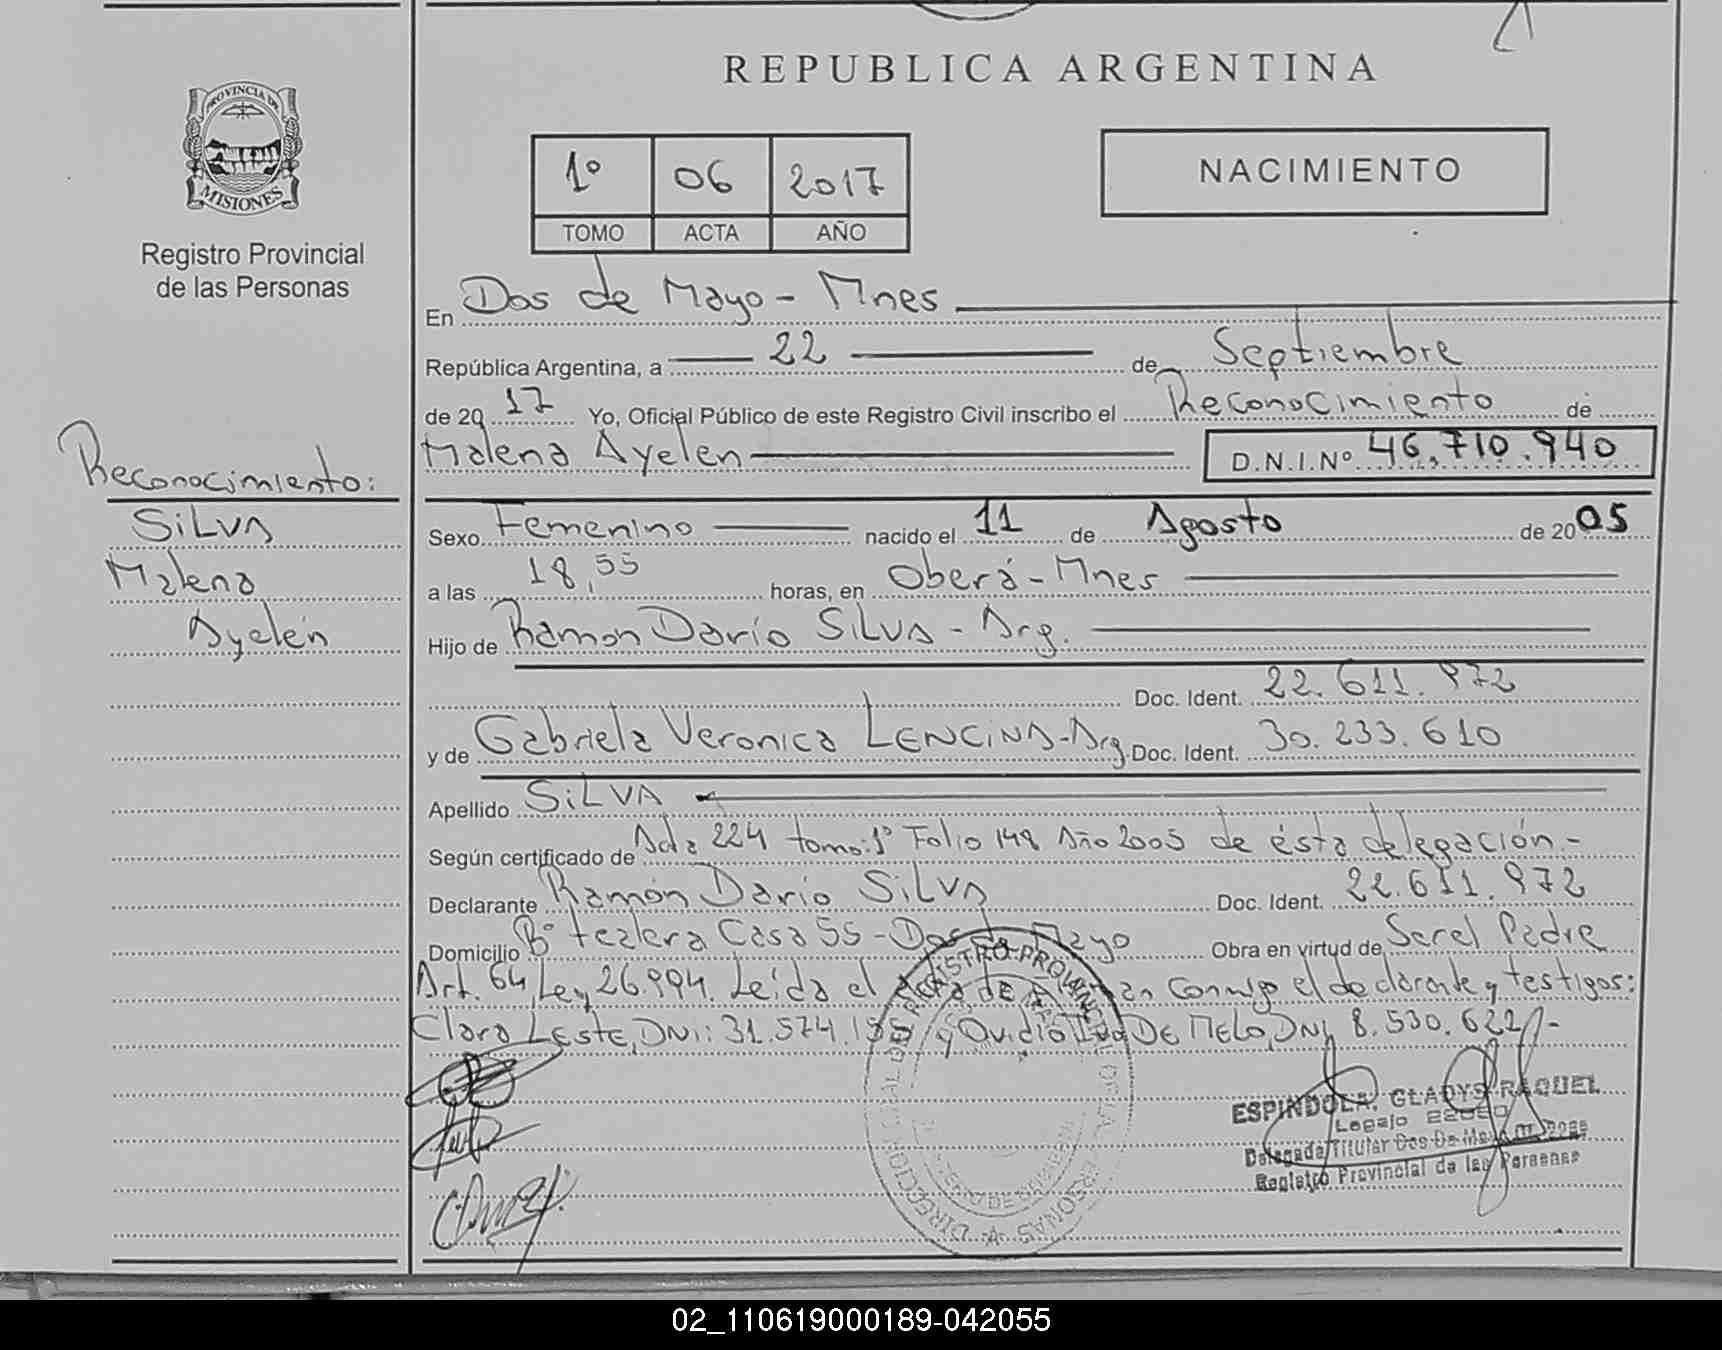 REPUBLICA ARGENTINA
PROVINCIA DE
MISIONES
Registro Provincial
de las Personas
1º 06 2017
TOMO ACTA AÑO
NACIMIENTO
En Dos de Mayo - Mnes
República Argentina, a 22 de Septiembre
de 2017 Yo, Oficial Público de este Registro Civil inscribo el Reconocimiento de
Malena Ayelen D.N.I.Nº 46.710.940
Reconocimiento:
SILVA
Malena
Ayelén
Sexo Femenino nacido el 11 de Agosto de 2005
a las 18,55 horas, en Oberá - Mnes
Hijo de Ramon Darío SILVA - Arg.
Doc. Ident. 22.611.972
y de Gabriela Veronica LENCINA - Arg. Doc. Ident. 30.233.610
Apellido SILVA
Según certificado de Acta 224 tomo: 1º Folio 148 Año 2005 de ésta delegación.-
Declarante Ramón Darío SILVA Doc. Ident. 22.611.972
Domicilio Bº tealera Casa 55 - Dos de Mayo Obra en virtud de Ser el Padre
Art. 64, Ley 26.994. Leída el Acta conmigo el declarante y testigos:
Clara LESTE, DNI: 31.574. y Ovidio DE MELO, DNI 8.530.622.-
ESPINDOLA, GLADYS RAQUEL
Legajo
Delegada Titular Dos De Mayo
Registro Provincial de las Personas
02_110619000189-042055